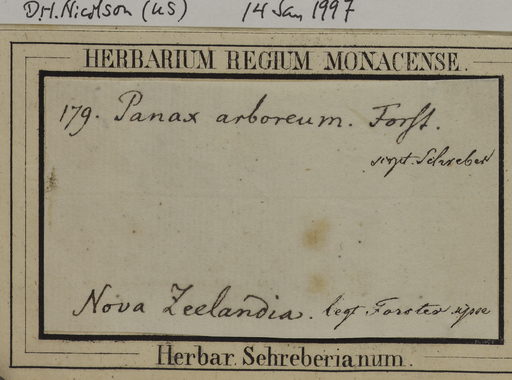 D.H. Nicolson (US) 14 Jan 1997
HERBARIUM REGIUM MONACENSE.
179. Panax arboreum. Forst.
script. Schreber
Nova Zeelandia. legt Forster ipse
Herbar. Schreberianum.